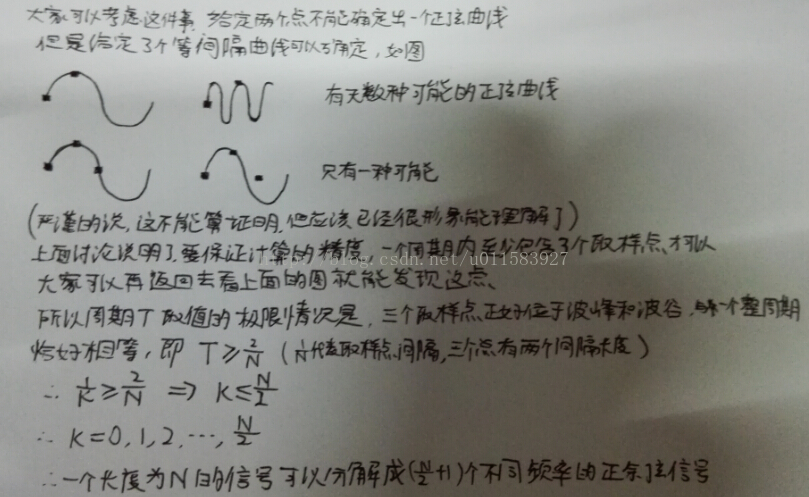 大家可以考虑这件事，给定两个点不能确定出一个正弦曲线
但是给定了3个等间隔曲线可以确定，如图
有无数种可能的正弦曲线
只有一种可能
(严谨的说，这不能算证明，但应该已经很形象能理解了)
上面讨论说明了，要保证计算的精度，一个周期内至少包含3个取样点才可以
http://blog.csdn.net/u011583927
大家可以再返回去看上面的图就能发现这点、
所以周期T取值的极限情况是，三个取样点正好位于波峰和波谷，与一个整周期
恰好相等，即 T≥2/N (1/N代表取样点间隔，三个点有两个间隔长度)
∴ 1/K≥2/N ⇒ K≤N/2
∴ K=0,1,2,…,N/2
∴一个长度为N的信号可以分解成(N/2+1)个不同频率的正余弦信号